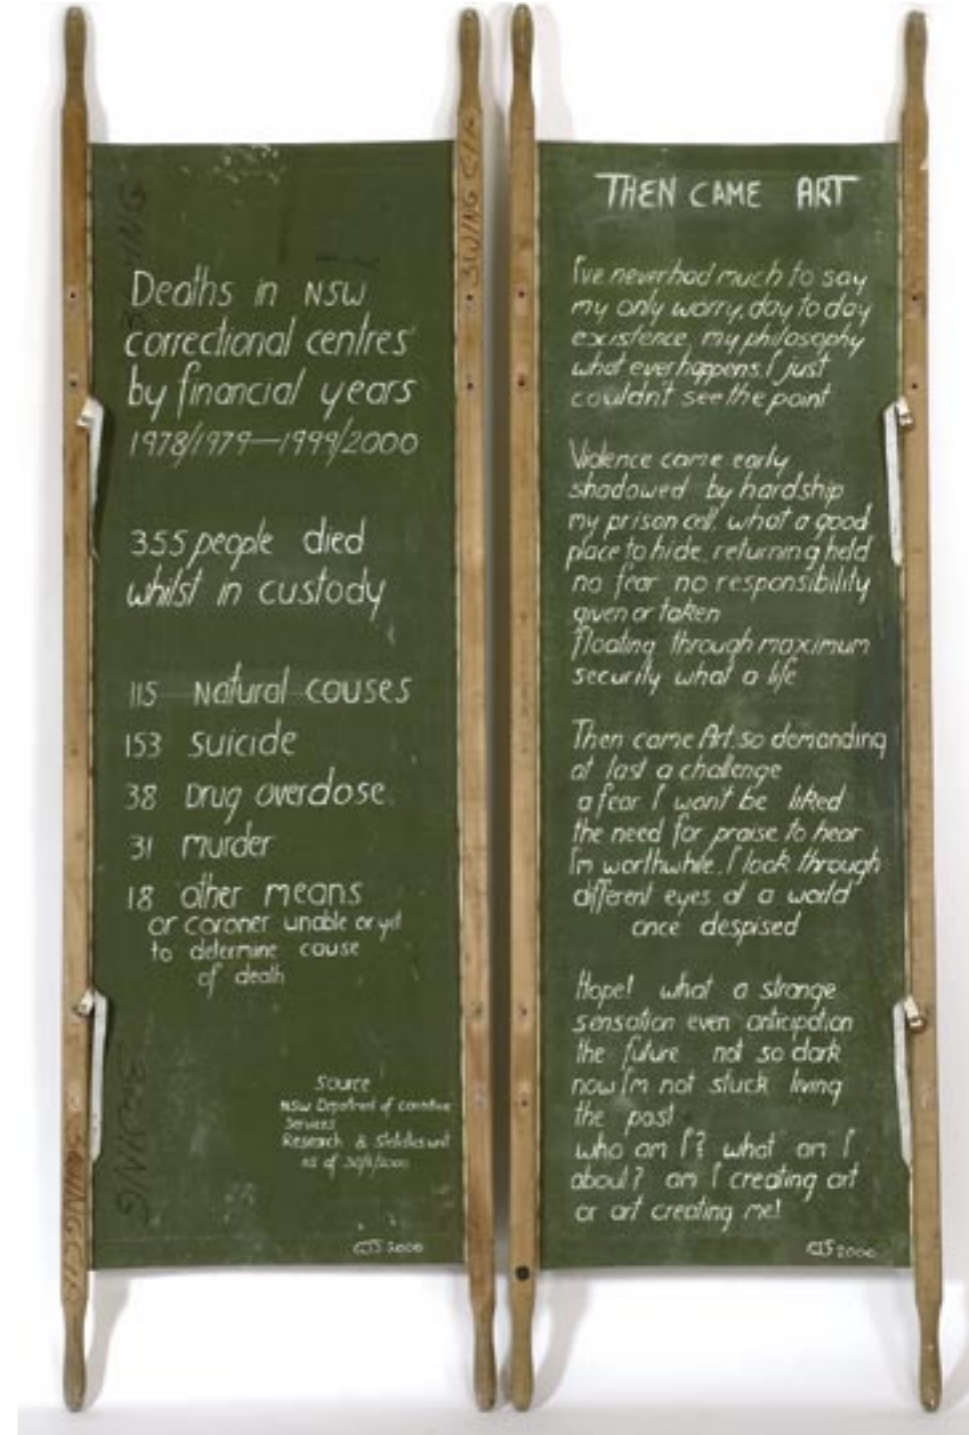 Deaths in NSW
correctional centres
by financial years
1978/1979—1999/2000
355 people died
whilst in custody
115 Natural causes
153 suicide
38 Drug overdose
31 murder
18 other means
or coroner unable or yet
to determine cause
of death
Source
NSW Department of corrective
Services
Research & Statistics unit
as of
3 WING
3 WING
3 WING
3 WING
THEN CAME ART
I've never had much to say
my only worry, day to day
existence, my philosophy
what ever happens. I just
couldn't see the point
Violence came early
shadowed by hardship
my prison cell, what a good
place to hide, returning held
no fear no responsibility
given or taken
floating through maximum
security what a life
Then came Art, so demanding
at last a challenge
a fear I wont be liked
the need for praise to hear
I'm worthwhile. I look through
different eyes at a world
once despised
Hope! what a strange
sensation even anticipation
the future not so dark
now I'm not stuck living
the past
who am I? what am I
about? am I creating art
or art creating me!
2000